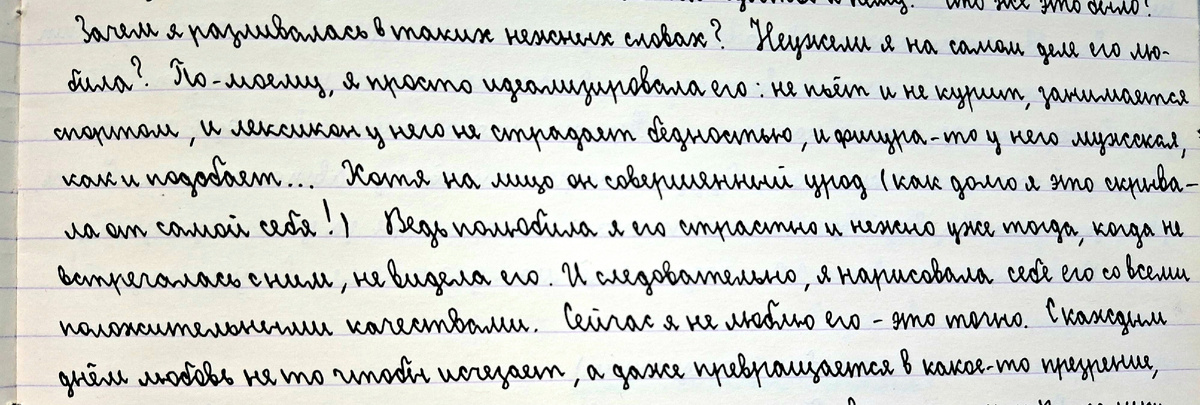 что же это было?
Зачем я разливалась в таких нежных словах? Неужели я на самом деле его лю-
била? По-моему, я просто идеализировала его: не пьёт и не курит, занимается
спортом, и лексикон у него не страдает бедностью, и фигура-то у него мужская,
как и подобает... Хотя на лицо он совершенный урод (как долго я это скрыва-
ла от самой себя!) Ведь полюбила я его страстно и нежно уже тогда, когда не
встречалась с ним, не видела его. И следовательно, я нарисовала себе его со всеми
положительными качествами. Сейчас я не люблю его - это точно. С каждым
днём любовь не то чтобы исчезает, а даже превращается в какое-то презрение,